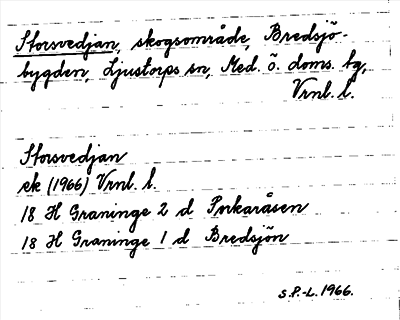 Storsvedjan, skogsområde, Bredsjö-
bygden, Ljustorps sn, Med. ö. doms. bg,
Vrnl. l.
Storsvedjan
ek (1966) Vrnl. l.
18 H Graninge 2 d Porkaråsen
18 H Graninge 1 d Bredsjön
S.P.-L. 1966.